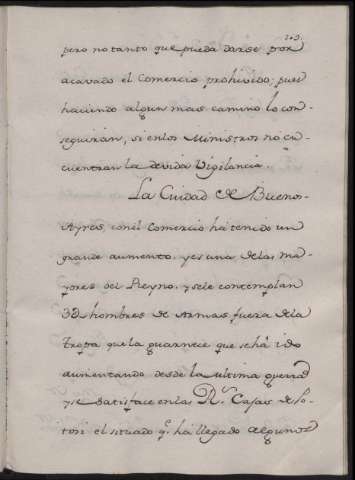 203.
pero no tanto que pueda darse por
acavado el Comercio prohivido; pues
haciendo algun mas camino lo con-
seguirán, si en los Ministros no en-
cuentran la devida Vigilancia.
La Ciudad de Buenos-
Ayres, con el Comercio há tenido un
grande aumento, y es una de las ma-
yores del Reyno, y se le contemplan
3D hombres de Armas, fuera de la
tropa que la guarnece que se há ido
aumentando desde la ultima guerra
y se satisface en las R.s Cajas de Po-
tosi el situado q.e há llegado algunos